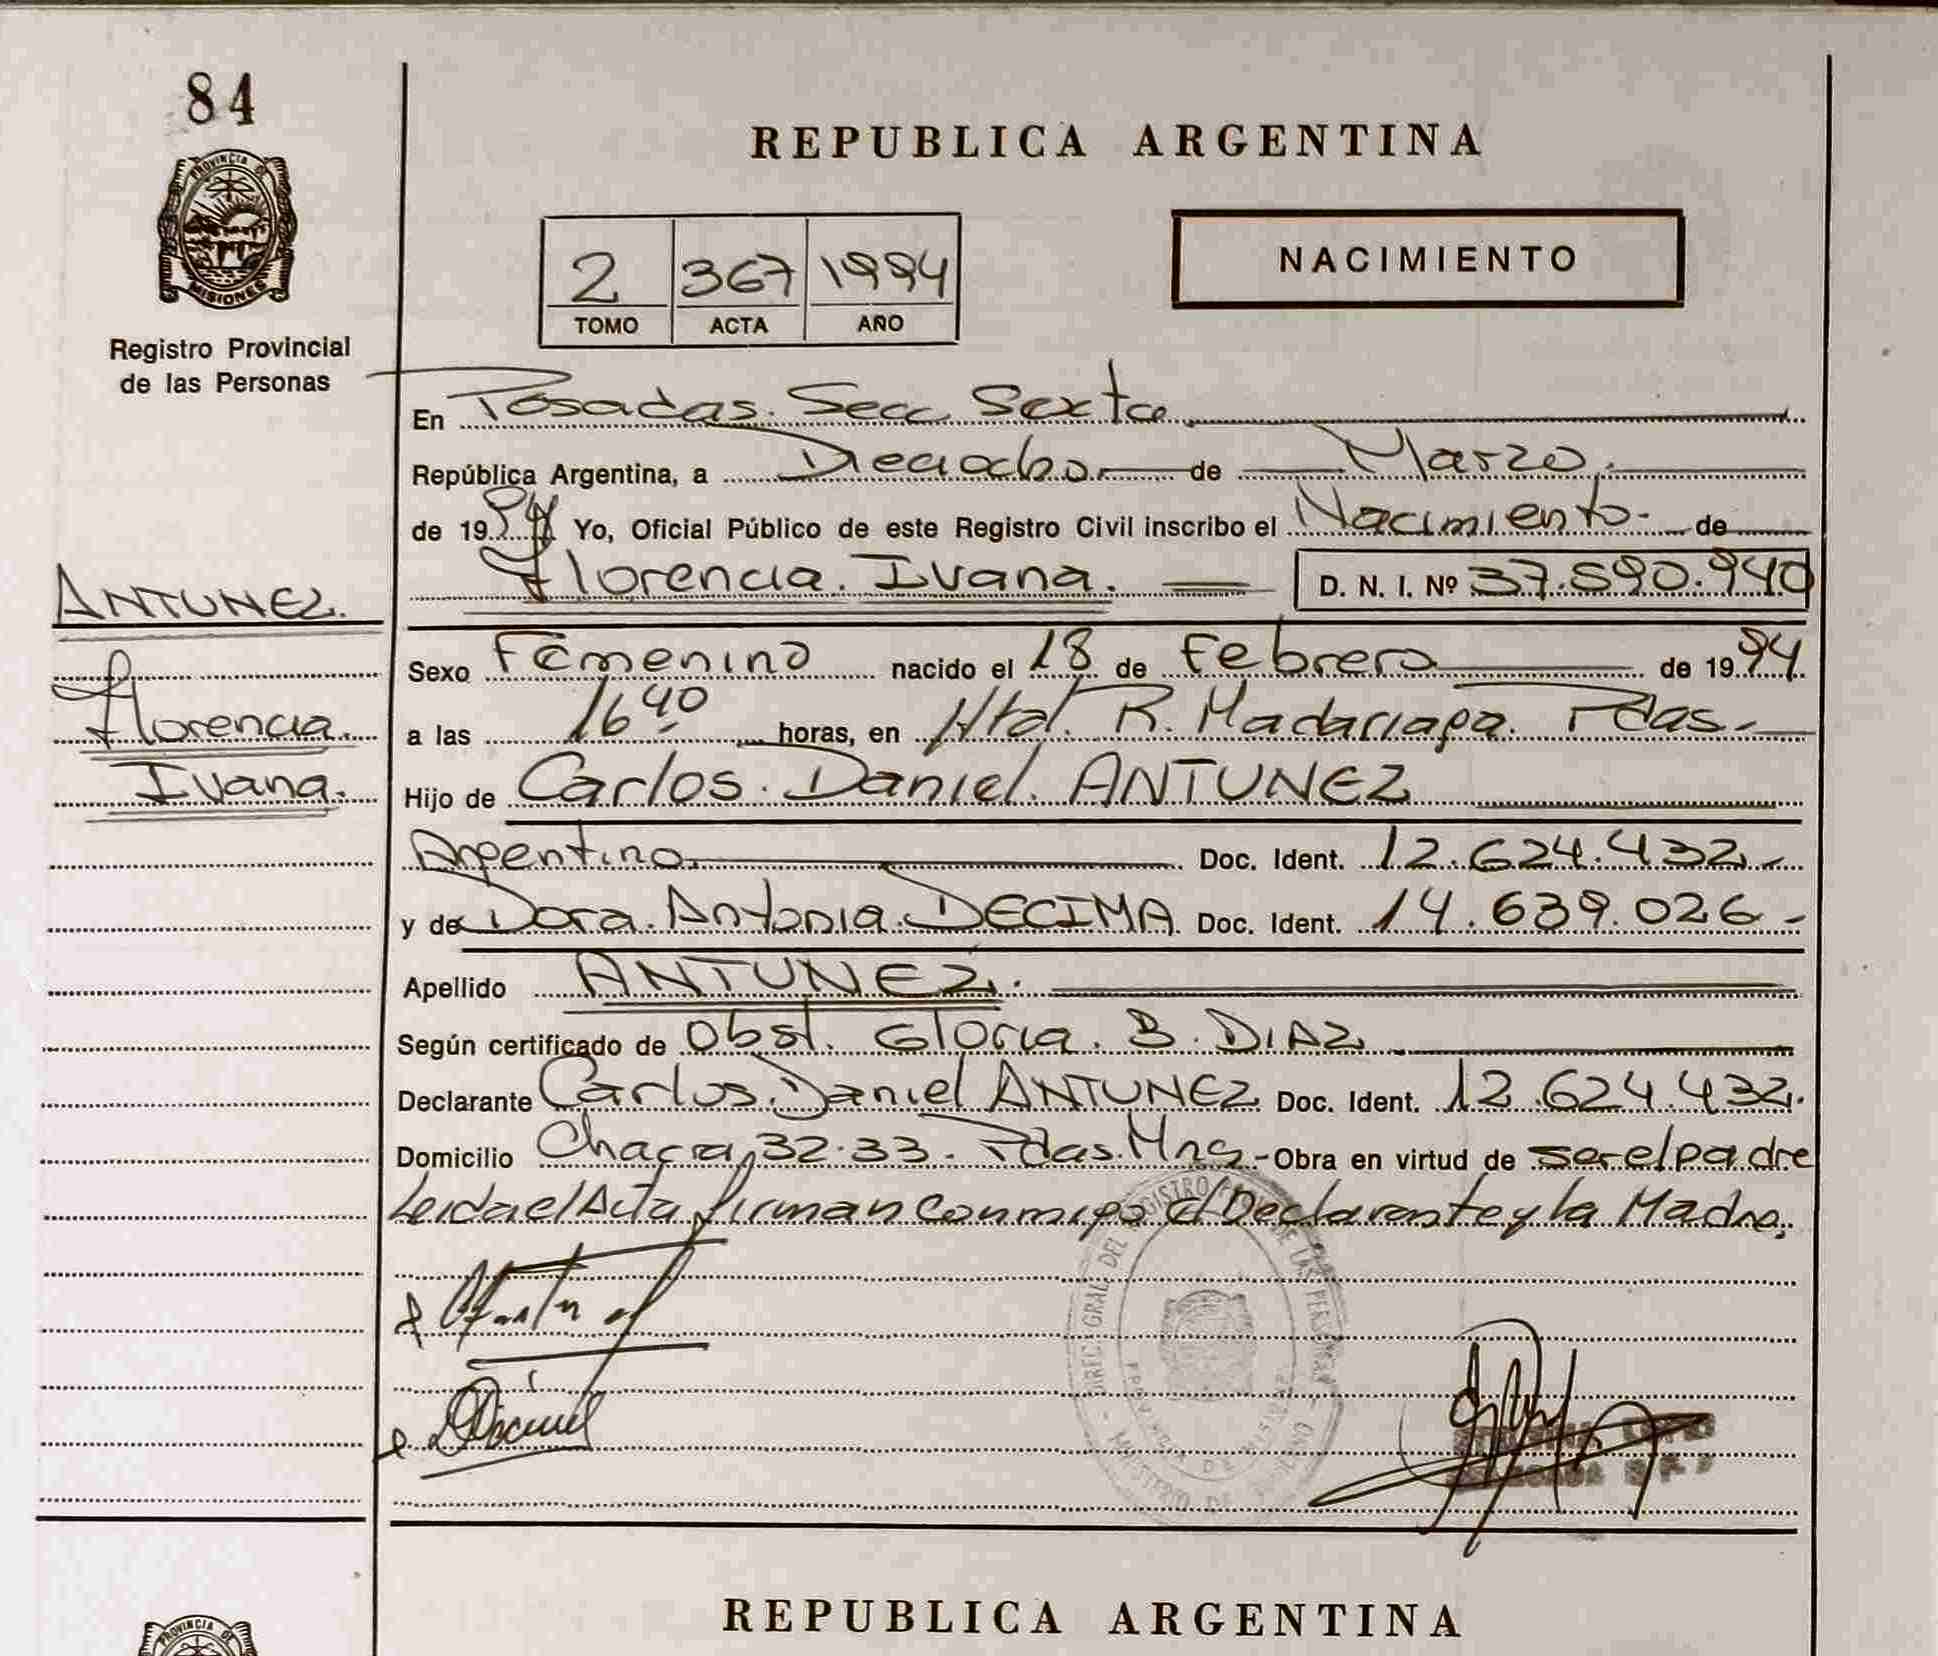 84
PROVINCIA DE
MISIONES
Registro Provincial
de las Personas
ANTUNEZ.
Florencia.
Ivana.
REPUBLICA ARGENTINA
2 367 1994
TOMO ACTA AÑO
NACIMIENTO
En Posadas. Secc. Sexta
República Argentina, a Dieciocho de Marzo.
de 1994 Yo, Oficial Público de este Registro Civil inscribo el Nacimiento de
Florencia. Ivana. D. N. I. Nº 37.590.940
Sexo Femenino nacido el 18 de Febrero de 1994.
a las 16 40 horas, en Htal. R. Madariaga. Pdas.
Hijo de Carlos. Daniel. ANTUNEZ
Argentino. Doc. Ident. 12.624.432.-
y de Dora. Antonia. DECIMA Doc. Ident. 14.639.026.-
Apellido ANTUNEZ.
Según certificado de Obst. Gloria. B. DIAZ
Declarante Carlos. Daniel ANTUNEZ Doc. Ident. 12.624.432.
Domicilio Chacra 32-33. Pdas. Mnes.- Obra en virtud de ser el padre
Leida el Acta firman conmigo el Declarante y la Madre.
DIREC. GRAL. DEL REGISTRO PROV. DE LAS PERSONAS
PROVINCIA DE MISIONES
MINISTERIO DE GOBIERNO
REPUBLICA ARGENTINA
PROVINCIA DE